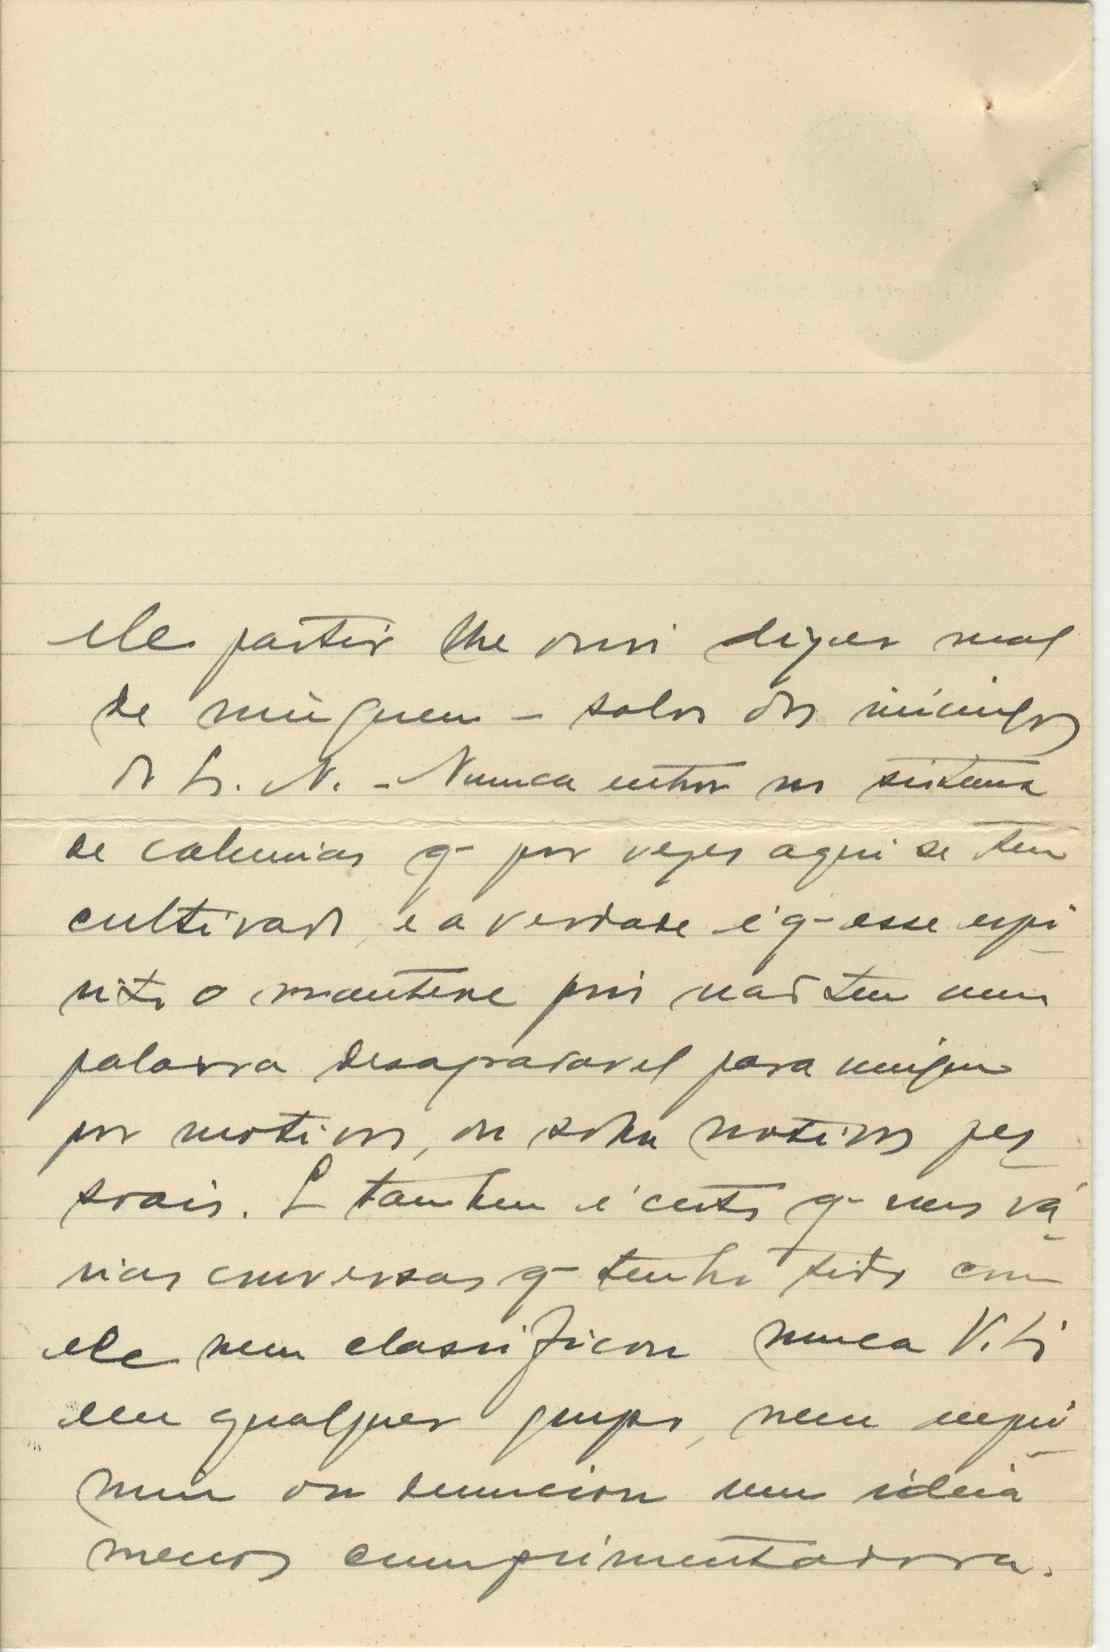 ele partir lhe ouvi dizer mal
de ninguem – salvo dos inimigos
do E. N. – Nunca entrou no sistema
de calunias q– por vezes aqui se tem
cultivado, e a verdade é q– esse espi
rito o mantene pois não tem uma
palavra desagradavel para ninguem
por motivos, ou sobre motivos pes
soais. E tambem é certo q– nas vá
rias conversas q– tenho tido com
ele nem classificou nunca V.
em qualquer grupo, nem expri
miu ou denunciou uma ideia
menos cumprimentadora.